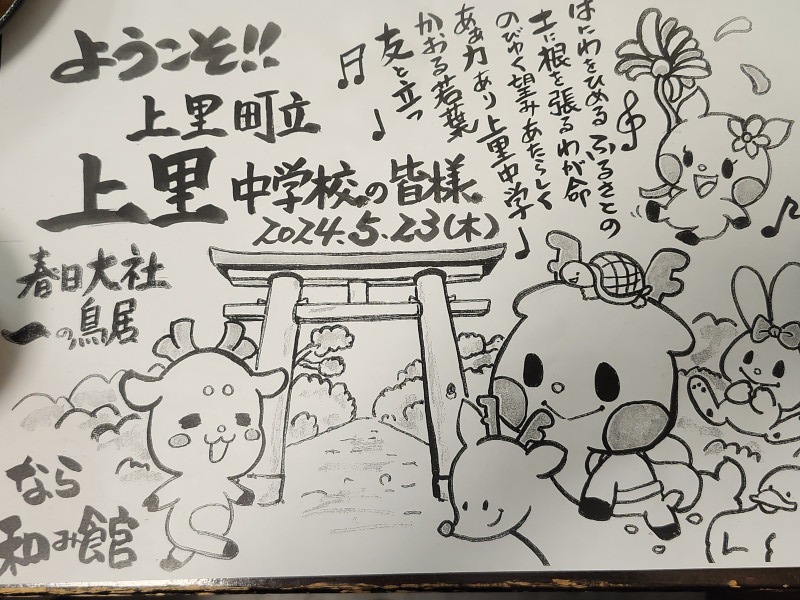 ようこそ!!
上里町立
上里中学校の皆様
2024.5.23(木)
はにわをひめる ふるさとの
土に根を張る わが命
のびゆく望み あたらしく
あゝ力あり 上里中学
かおる若葉
友と立つ
春日大社
一の鳥居
なら
和み館